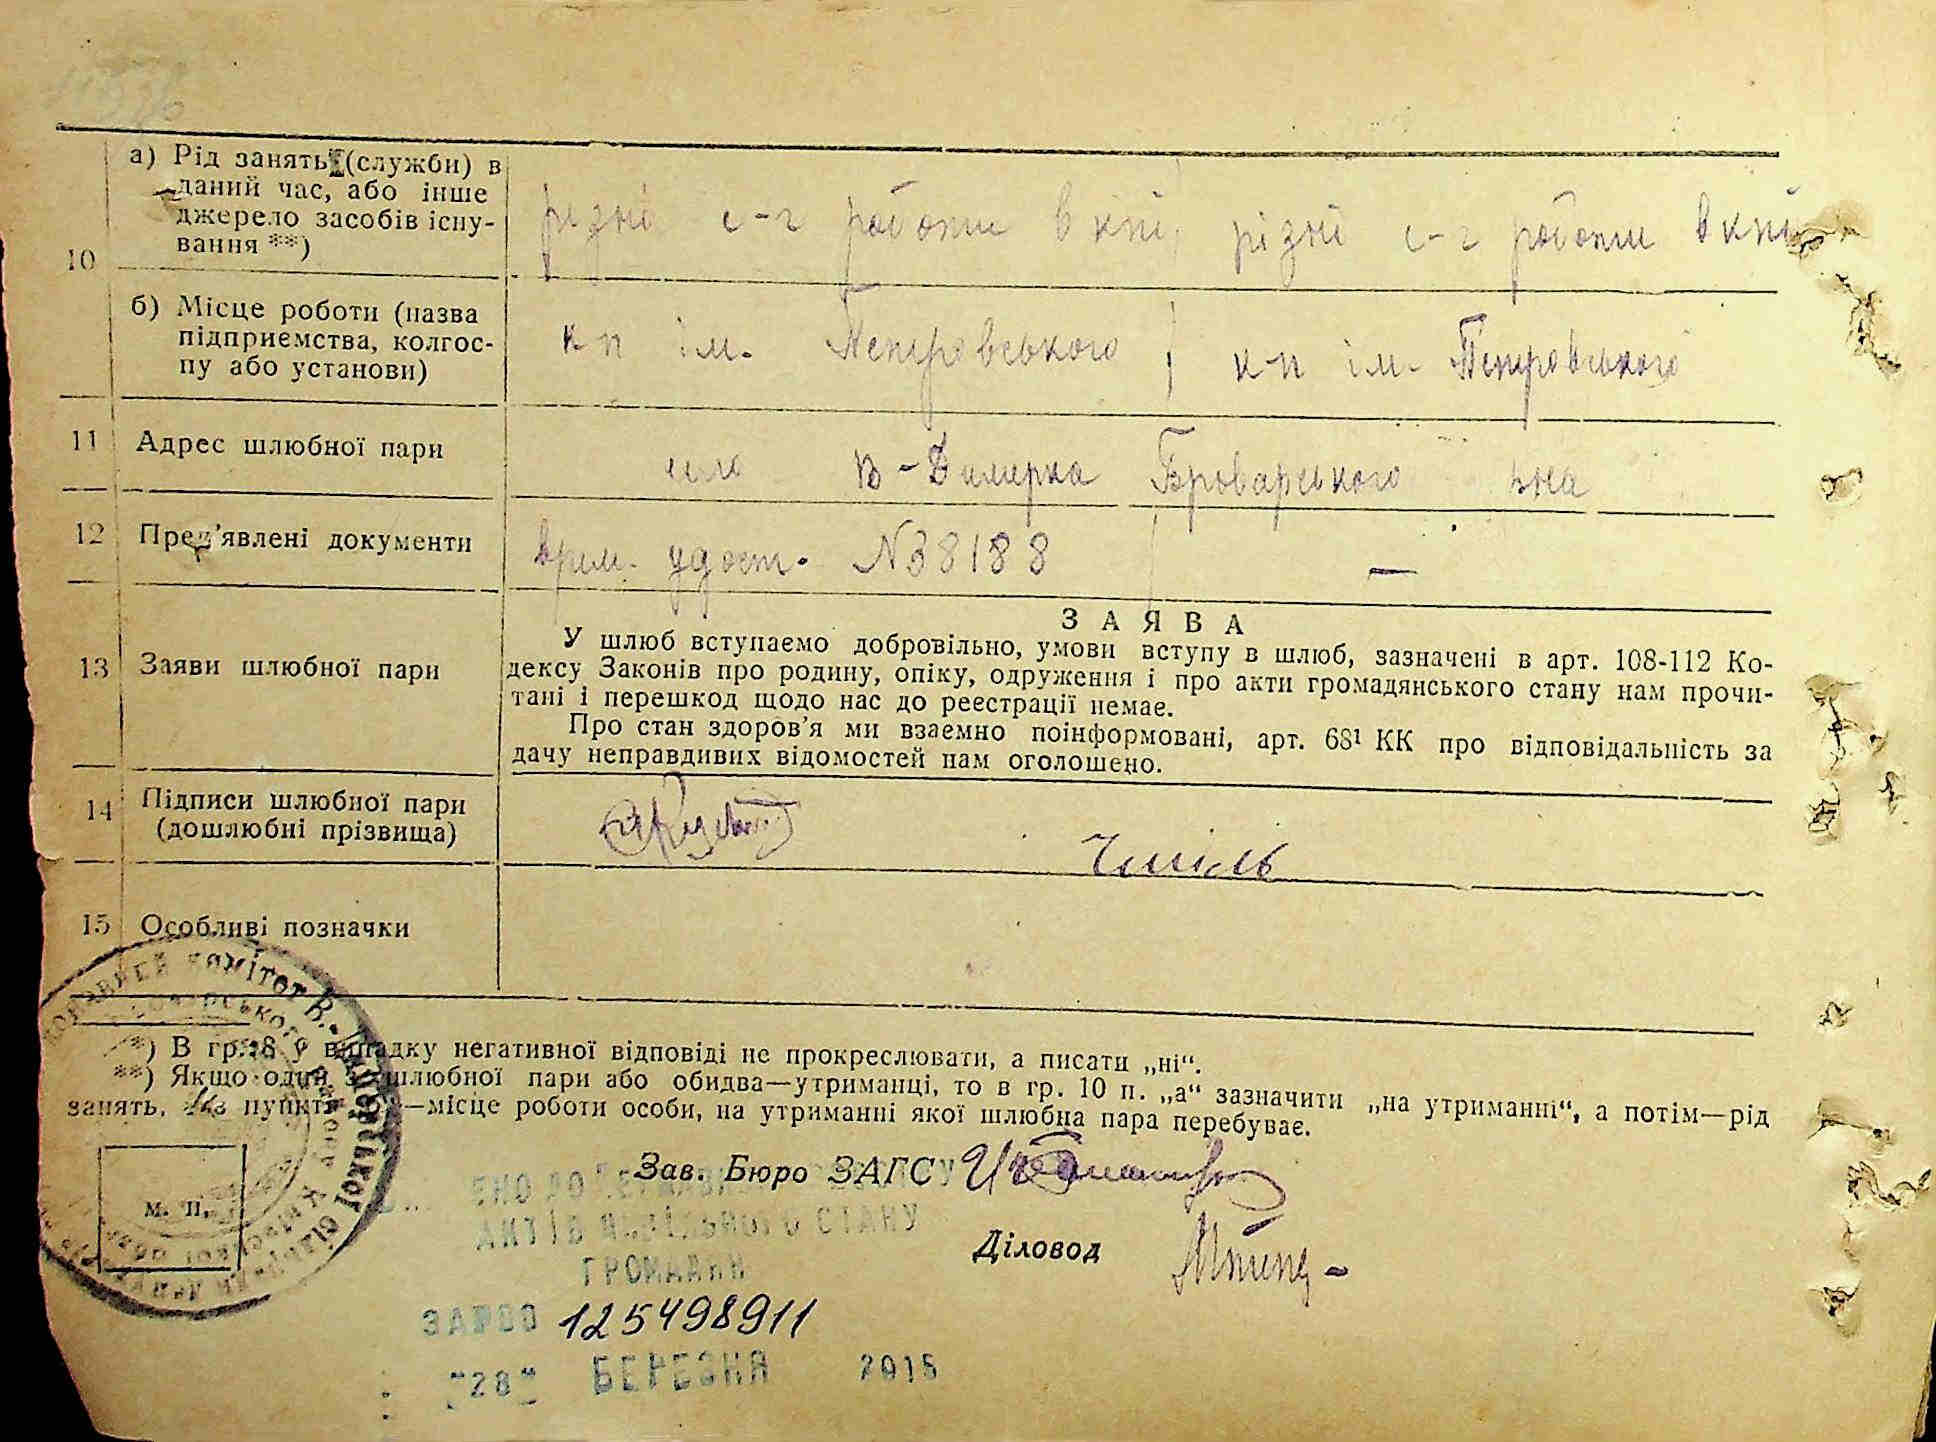 10
а) Рід занять (служби) в
даний час, або інше
джерело засобів існу-
вання **)
різні с-г роботи в к-пі
різні с-г роботи в к-пі
б) Місце роботи (назва
підприємства, колгос-
пу або установи)
к-п ім. Петровського
к-п ім. Петровського
11 Адрес шлюбної пари
село В-Димерка Броварського р-на
12 Пред'явлені документи
врем. удост. № 38188
—
13 Заяви шлюбної пари
ЗАЯВА
У шлюб вступаємо добровільно, умови вступу в шлюб, зазначені в арт. 108-112 Ко-
дексу Законів про родину, опіку, одруження і про акти громадянського стану нам прочи-
тані і перешкод щодо нас до реєстрації немає.
Про стан здоров'я ми взаємно поінформовані, арт. 68¹ КК про відповідальність за
дачу неправдивих відомостей нам оголошено.
14 Підписи шлюбної пари
(дошлюбні прізвища)
15 Особливі позначки
*) В гр. 8 у випадку негативної відповіді не прокреслювати, а писати „ні“.
**) Якщо один з шлюбної пари або обидва—утриманці, то в гр. 10 п. „а“ зазначити „на утриманні“, а потім—рід
занять, із пункті —місце роботи особи, на утриманні якої шлюбна пара перебуває.
Зав. Бюро ЗАГС
м. п.
Діловод
комітет В.-Димерської
АКТІВ ЦИВІЛЬНОГО СТАНУ
ГРОМАДЯН
125498911
"28" БЕРЕЗНЯ 2015